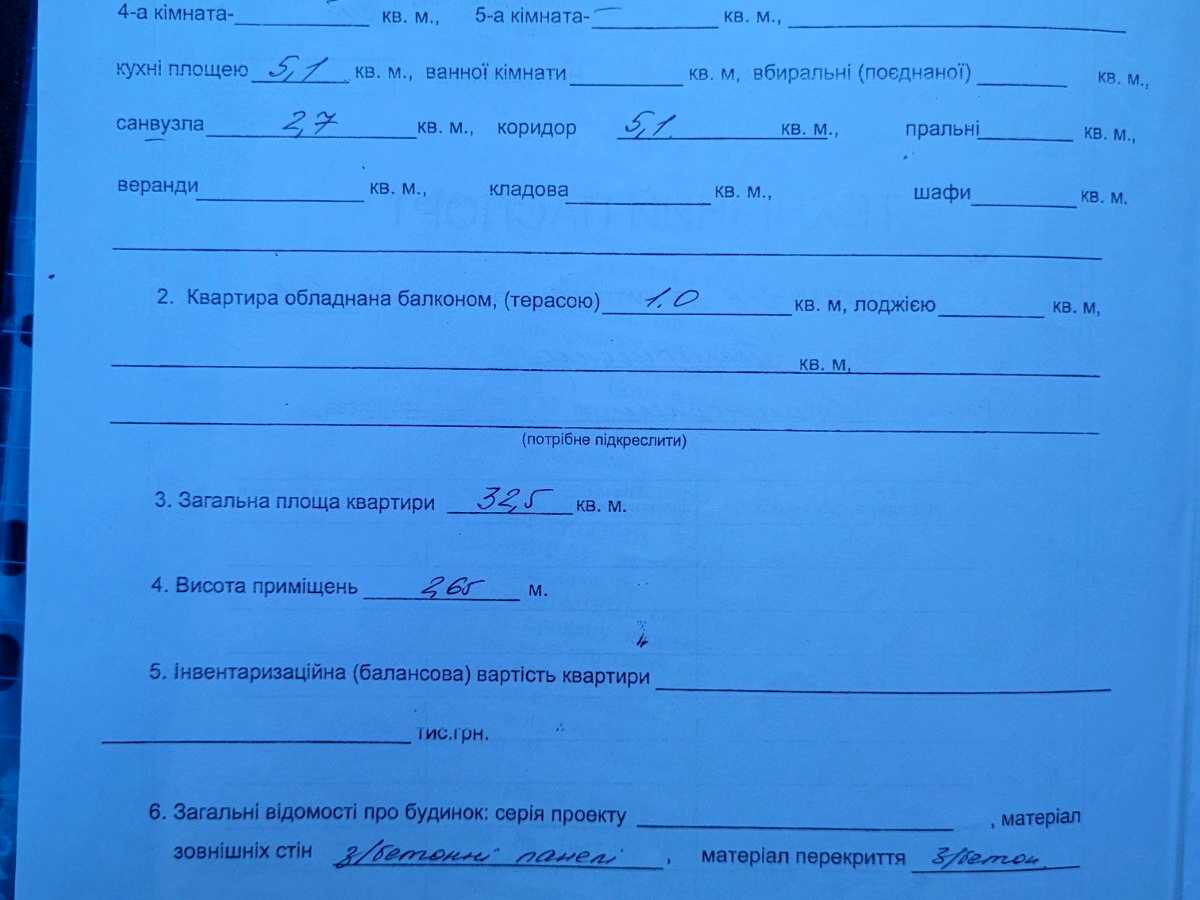 4-а кімната-____________ кв. м., 5-а кімната-____________ кв. м., ______________________________
кухні площею 5,1 кв. м., ванної кімнати __________ кв. м, вбиральні (поєднаної) ________ кв. м.,
санвузла 2,7 кв. м., коридор 5,1 кв. м., пральні________ кв. м.,
веранди_______________ кв. м., кладова_____________ кв. м., шафи_________ кв. м.
2. Квартира обладнана балконом, (терасою) 1.0 кв. м, лоджією_________ кв. м,
кв. м,
(потрібне підкреслити)
3. Загальна площа квартири 32,5 кв. м.
4. Висота приміщень 2,65 м.
5. Інвентаризаційна (балансова) вартість квартири ______________________________
____________________________ тис.грн.
6. Загальні відомості про будинок: серія проекту ____________________________, матеріал
зовнішніх стін з/бетонні панелі, матеріал перекриття з/бетон